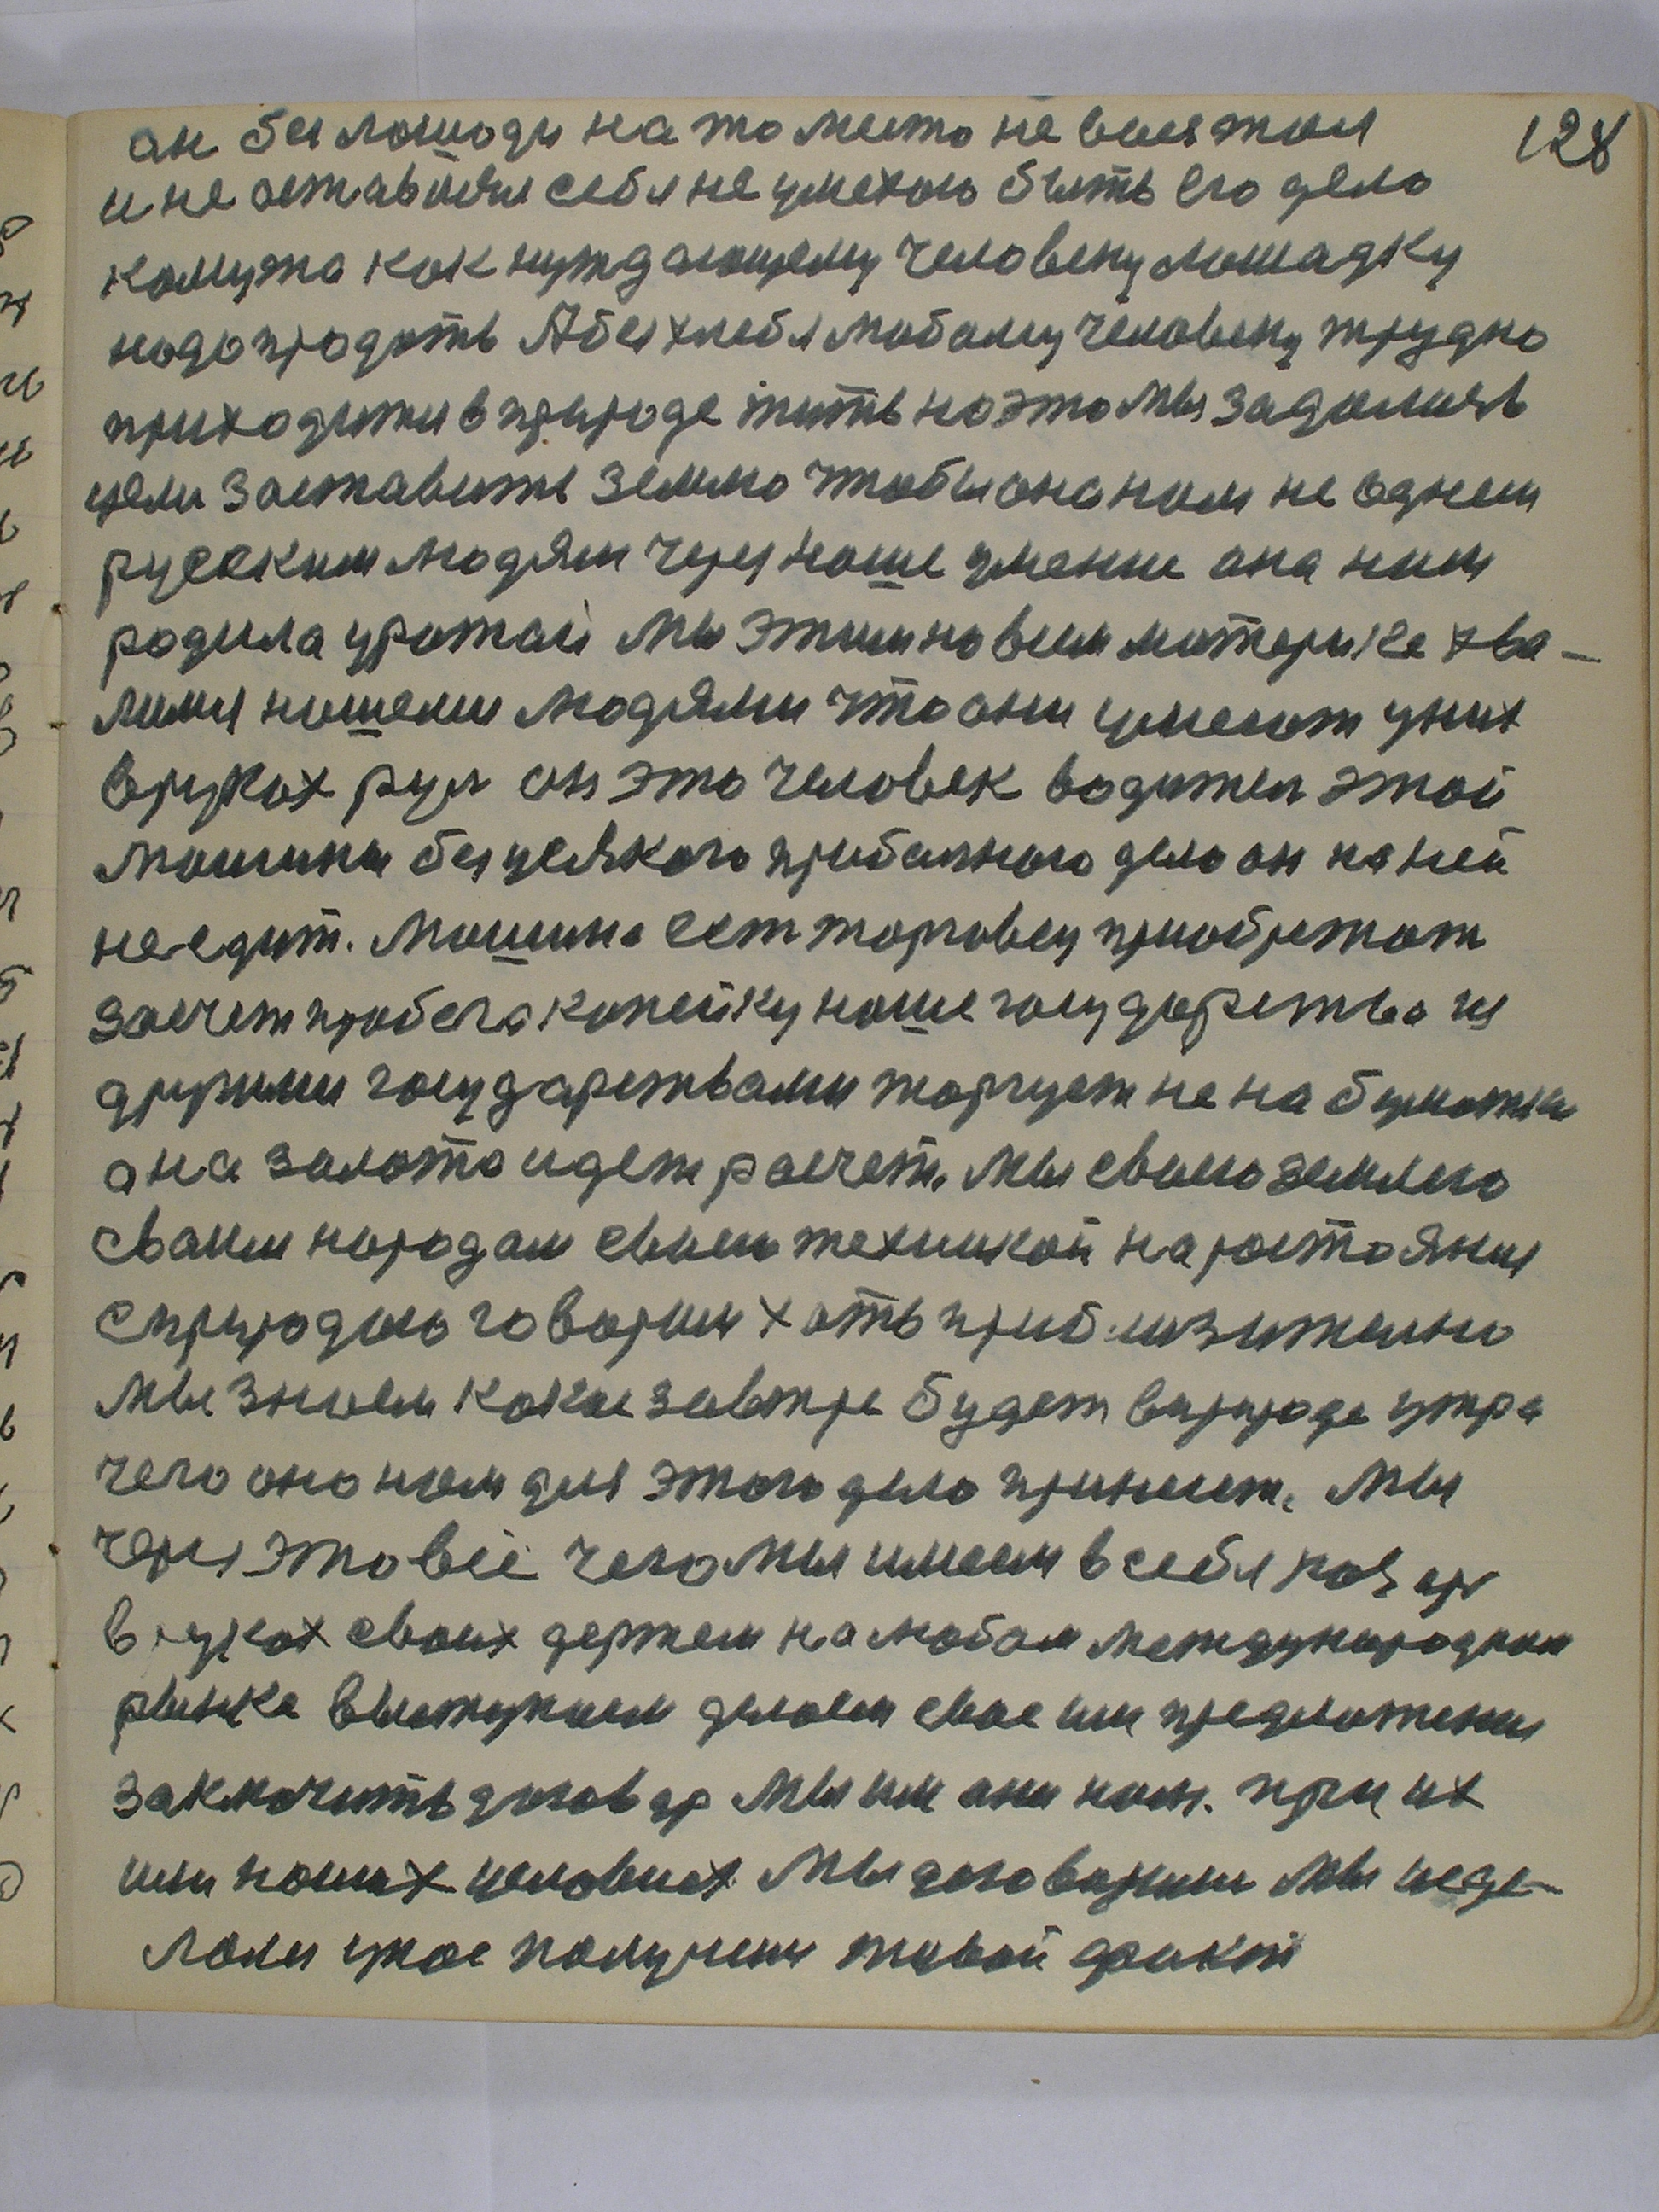 128
он бы лошоди на то место не выежал
и не оставлял себя не умехою быть его дело
кому то как нуждающему человеку лошадку
надо продать А без хлебя любому человеку трудно
приходится в природе жить поэто мы задались
цели заставить землю чтобы она нам не однем
русским людям через наше умение она нам
родила урожай мы этим на всем материке хва-
лимя нашеми людями что они умеют у них
в руках рул он это человек водител этой
машины без усякого прибылного дела он на ней
не едит. Машина ест торговец приобретает
засчет пробега копейку наше государство из
другими государствами торгует не на бумажки
а на золото идет расчет. Мы своею землею
своим народам своею техникой на ростояния
с природою говорим хоть приблизительно
мы знаем какое завтре будет в природе утра
чего оно нам для этого дела принесет. Мы
через это всё чего мы имеем в себя
в руках своих держем на любом международном
рынке выступаем делаем свое им предложения
заключить договор мы им они нам. при их
или наших условиях мы договорили мы сде-
лоли укое получили живой факт